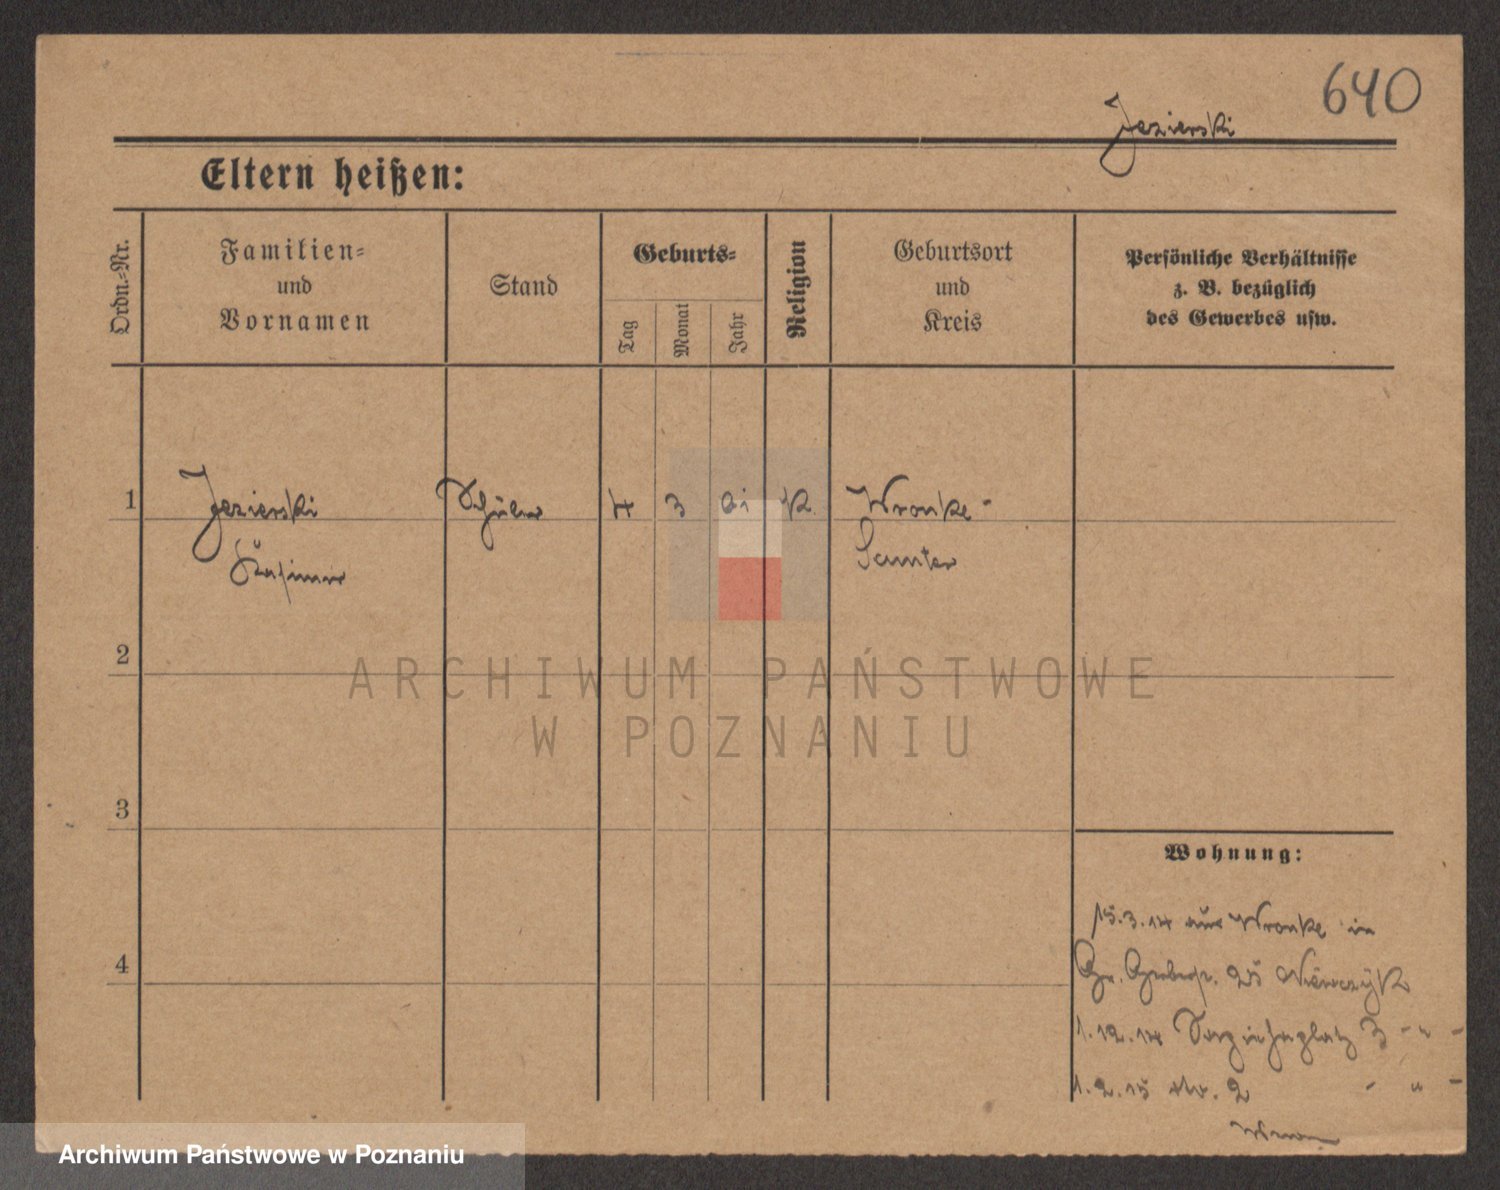 640
Jezierski
Eltern heißen:
Ordn.-Nr.
Familien-
und
Vornamen
Stand
Geburts-
Tag
Monat
Jahr
Religion
Geburtsort
und
Kreis
Persönliche Verhältnisse
z. B. bezüglich
des Gewerbes usw.
1
Jezierski
Kasimir
Schüler
4
3
K
Wronke-
Samter
2
ARCHIWUM PAŃSTWOWE
W POZNANIU
3
4
Wohnung:
15.3.14 aus Wronke in
Gr. 25
1.12.14 3 - " -
1.2.15 2 - " -
Archiwum Państwowe w Poznaniu